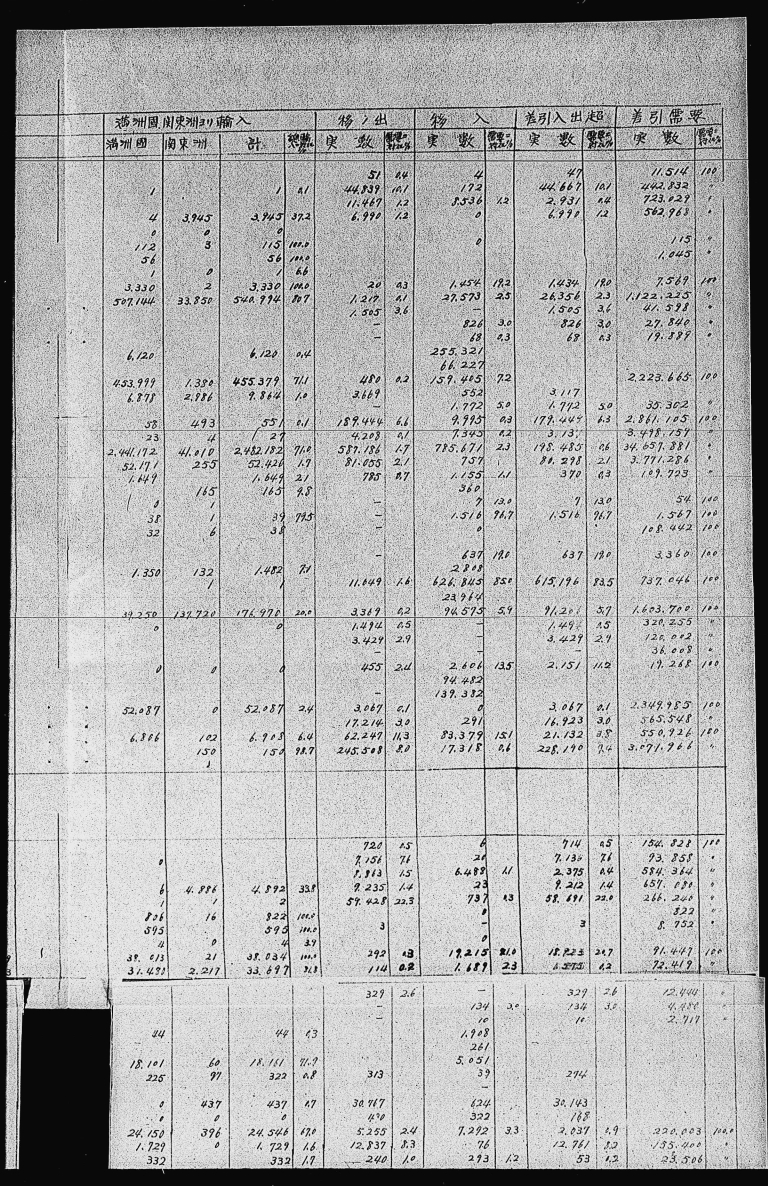 満洲國関東洲ヨリ輸入 移ノ出 移 入 差引入出超 差引需要
満洲國 関東洲 計 実 数 実 数 実 数 実 数
51 0.4 4 47 11.514 100
1 1 0.1 44.839 10.1 172 44.667 10.1 442.832 〃
11.467 1.2 8.536 1.2 2.931 0.4 723.029 〃
4 3.945 3.945 37.2 6.990 1.2 0 6.990 1.2 562.963 〃
0 0 0
112 3 115 100.0 0 115 〃
56 56 100.0 1.045 〃
1 0 1 6.6
3.330 2 3.330 100.0 20 0.3 1.454 19.2 1.434 19.0 7.569 100
507.144 33.850 540.994 80.7 1.217 0.1 27.573 2.5 26.356 2.3 1.122.225 〃
1.505 3.6 — 1.505 3.6 41.598 〃
— 826 3.0 826 3.0 27.840 〃
— 68 0.3 68 0.3 19.889 〃
6.120 6.120 0.4 255.321
66.227
453.999 1.380 455.379 71.1 480 0.2 159.405 7.2 2.223.665 100
6.878 2.986 9.864 1.0 3.669 552 3.117
— 1.772 5.0 1.772 5.0 35.302 〃
58 493 551 0.1 189.444 6.6 9.995 0.3 179.449 6.3 2.861.105 100
23 4 27 4.208 0.1 7.345 0.2 3.498.157 〃
2.441.172 41.010 2.482.182 71.0 587.186 1.7 785.671 2.3 198.485 0.6 34.657.881 〃
52.171 255 52.426 1.7 81.055 2.1 757 80.298 2.1 3.771.286 〃
1.649 1.649 2.1 785 0.7 1.155 1.1 370 0.3 109.723 〃
165 165 9.8 360
0 1 — 7 13.0 7 13.0 54 100
38 1 39 79.5 — 1.516 96.7 1.516 96.7 1.567 100
32 6 38 0 108.442 100
— 637 19.0 637 19.0 3.360 100
1.350 132 1.482 7.1 2.808
1 1 11.649 1.6 626.845 85.0 615.196 83.5 737.046 100
23.964
39.250 137.720 176.970 20.0 3.369 0.2 94.575 5.9 91.206 5.7 1.603.700 100
0 0 1.494 0.5 — 1.494 0.5 320.255 〃
3.429 2.9 — 3.429 2.9 120.002 〃
— — 36.008 〃
0 0 0 455 2.4 2.606 13.5 2.151 11.2 19.268 100
94.482
— 139.382
52.087 0 52.087 2.4 3.067 0.1 0 3.067 0.1 2.349.985 100
17.214 3.0 291 16.923 3.0 565.548 〃
6.806 102 6.908 6.4 62.247 11.3 83.379 15.1 21.132 3.8 550.926 100
150 150 98.7 245.508 8.0 17.318 0.6 228.190 7.4 3.071.966 〃
1
720 0.5 6 714 0.5 154.828 100
0 7.156 7.6 20 7.136 7.6 93.858 〃
8.863 1.5 6.488 1.1 2.375 0.4 584.364 〃
6 4.886 4.892 33.8 9.235 1.4 23 9.212 1.4 657.080 〃
1 1 2 59.428 22.3 737 0.3 58.691 22.0 266.240 〃
806 16 822 100.0 0 822 〃
595 595 100.0 3 — 3 8.752 〃
4 0 4 3.9 0
38.013 21 38.034 100.0 292 0.3 19.215 21.0 18.923 20.7 91.447 100
31.480 2.217 33.697 114 0.2 1.689 2.3 0.2 72.419 〃
329 2.6 — 329 2.6 12.444 〃
— 134 3.0 134 3.0 4.480 〃
— 10 10 2.717 〃
44 44 0.3 1.908
261
18.101 60 18.161 71.9 5.051
225 97 322 0.8 313 39 274
—
0 437 437 0.7 30.767 624 30.143
0 0 0 490 322 168
24.150 396 24.546 67.0 5.255 2.4 7.292 3.3 2.037 0.9 220.003 100.0
1.729 0 1.729 1.6 12.837 8.3 76 12.761 8.2 155.400 〃
332 332 1.7 240 1.0 293 1.2 53 0.2 23.506 〃